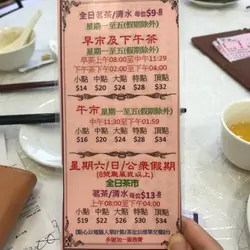 全日茗茶/清水 每位$9.8
星期一至五(假期除外)
早市及下午茶
星期一至五(假期除外)
早茶上午08:00至中午11:29
下午茶下午02:00至下午04:00
小點 中點 大點 特點 頂點
$14 $20 $24 $28 $32
午市 星期一至五(假期除外)
上午11:30至下午01:59
小點 中點 大點 特點 頂點
$16 $22 $26 $30 $34
星期六/日/公眾假期
全日茶市
茗茶/清水 每位$13.8
上午08:00至下午04:00
小點 中點 大點 特點 頂點
$18 $24 $28 $32 $36
多謝加一服務費